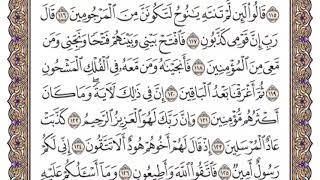 ١١٥ قَالُوا۟ لَئِن لَّمْ تَنتَهِ يَـٰنُوحُ لَتَكُونَنَّ مِنَ ٱلْمَرْجُومِينَ ١١٦ قَالَ
رَبِّ إِنَّ قَوْمِى كَذَّبُونِ ١١٧ فَٱفْتَحْ بَيْنِى وَبَيْنَهُمْ فَتْحًا وَنَجِّنِى وَمَن
مَّعِىَ مِنَ ٱلْمُؤْمِنِينَ ١١٨ فَأَنجَيْنَـٰهُ وَمَن مَّعَهُۥ فِى ٱلْفُلْكِ ٱلْمَشْحُونِ
١١٩ ثُمَّ أَغْرَقْنَا بَعْدُ ٱلْبَاقِينَ ١٢٠ إِنَّ فِى ذَٰلِكَ لَـَٔايَةً وَمَا كَانَ
أَكْثَرُهُم مُّؤْمِنِينَ ١٢١ وَإِنَّ رَبَّكَ لَهُوَ ٱلْعَزِيزُ ٱلرَّحِيمُ ١٢٢ كَذَّبَتْ
عَادٌ ٱلْمُرْسَلِينَ ١٢٣ إِذْ قَالَ لَهُمْ أَخُوهُمْ هُودٌ أَلَا تَتَّقُونَ ١٢٤ إِنِّى لَكُمْ
رَسُولٌ أَمِينٌ ١٢٥ فَٱتَّقُوا۟ ٱللَّهَ وَأَطِيعُونِ ١٢٦ وَمَآ أَسْـَٔلُكُمْ عَلَيْهِ